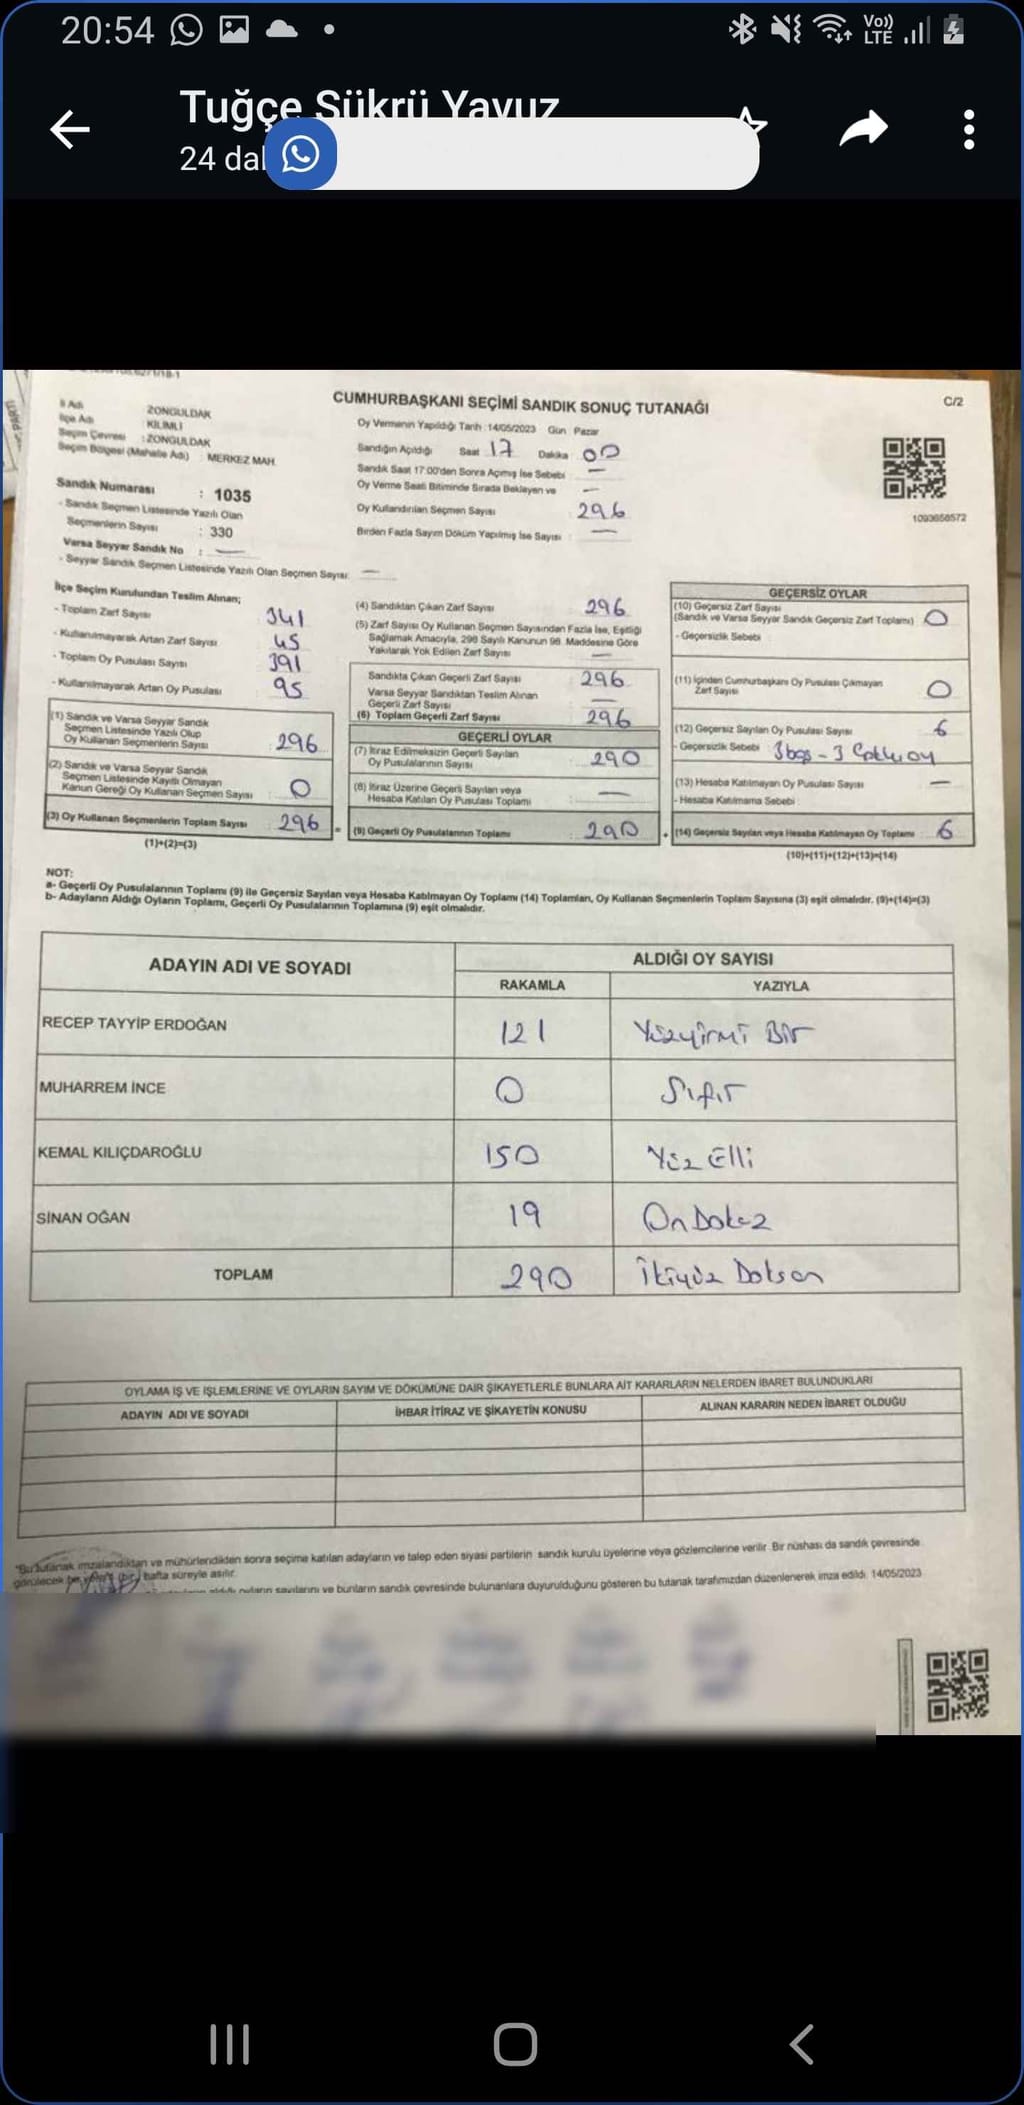 20:54
Vo)) LTE
Tuğçe Şükrü Yavuz
24 dal
CUMHURBAŞKANI SEÇİMİ SANDIK SONUÇ TUTANAĞI
C/2
İl Adı ZONGULDAK
İlçe Adı KİLİMLİ
Seçim Çevresi : ZONGULDAK
Seçim Bölgesi (Mahalle Adı) : MERKEZ MAH.
Oy Vermenin Yapıldığı Tarih : 14/05/2023 Gün : Pazar
Sandığın Açıldığı Saat 17 Dakika 00
Sandık Saat 17:00'den Sonra Açılmış İse Sebebi —
Oy Verme Saati Bitiminde Sırada Bekleyen ve —
Oy Kullandırılan Seçmen Sayısı 296
Birden Fazla Sayım Döküm Yapılmış İse Sayısı : —
1093658572
Sandık Numarası : 1035
- Sandık Seçmen Listesinde Yazılı Olan
Seçmenlerin Sayısı : 330
Varsa Seyyar Sandık No : —
- Seyyar Sandık Seçmen Listesinde Yazılı Olan Seçmen Sayısı: —
İlçe Seçim Kurulundan Teslim Alınan;
- Toplam Zarf Sayısı 341
- Kullanılmayarak Artan Zarf Sayısı 45
- Toplam Oy Pusulası Sayısı 391
- Kullanılmayarak Artan Oy Pusulası 95
(1) Sandık ve Varsa Seyyar Sandık
Seçmen Listesinde Yazılı Olup
Oy Kullanan Seçmenlerin Sayısı : 296
(2) Sandık ve Varsa Seyyar Sandık
Seçmen Listesinde Kayıtlı Olmayan
Kanun Gereği Oy Kullanan Seçmen Sayısı : 0
(3) Oy Kullanan Seçmenlerin Toplam Sayısı : 296
(1)+(2)=(3)
(4) Sandıktan Çıkan Zarf Sayısı 296
(5) Zarf Sayısı Oy Kullanan Seçmen Sayısından Fazla İse, Eşitliği
Sağlamak Amacıyla, 298 Sayılı Kanunun 98. Maddesine Göre
Yakılarak Yok Edilen Zarf Sayısı —
Sandıkta Çıkan Geçerli Zarf Sayısı 296
Varsa Seyyar Sandıktan Teslim Alınan
Geçerli Zarf Sayısı —
(6) Toplam Geçerli Zarf Sayısı 296
GEÇERLİ OYLAR
(7) İtiraz Edilmeksizin Geçerli Sayılan
Oy Pusulalarının Sayısı : 290
(8) İtiraz Üzerine Geçerli Sayılan veya
Hesaba Katılan Oy Pusulası Toplamı : —
= (9) Geçerli Oy Pusulalarının Toplamı : 290
GEÇERSİZ OYLAR
(10) Geçersiz Zarf Sayısı
(Sandık ve Varsa Seyyar Sandık Geçersiz Zarf Toplamı) 0
- Geçersizlik Sebebi
(11) İçinden Cumhurbaşkanı Oy Pusulası Çıkmayan
Zarf Sayısı 0
(12) Geçersiz Sayılan Oy Pusulası Sayısı 6
- Geçersizlik Sebebi 3 boş - 3 Çoklu oy
(13) Hesaba Katılmayan Oy Pusulası Sayısı —
- Hesaba Katılmama Sebebi
+ (14) Geçersiz Sayılan veya Hesaba Katılmayan Oy Toplamı : 6
(10)+(11)+(12)+(13)=(14)
NOT:
a- Geçerli Oy Pusulalarının Toplamı (9) ile Geçersiz Sayılan veya Hesaba Katılmayan Oy Toplamı (14) Toplamları, Oy Kullanan Seçmenlerin Toplam Sayısına (3) eşit olmalıdır. (9)+(14)=(3)
b- Adayların Aldığı Oyların Toplamı, Geçerli Oy Pusulalarının Toplamına (9) eşit olmalıdır.
ADAYIN ADI VE SOYADI
ALDIĞI OY SAYISI
RAKAMLA YAZIYLA
RECEP TAYYİP ERDOĞAN 121 Yüzyirmi Bir
MUHARREM İNCE 0 Sıfır
KEMAL KILIÇDAROĞLU 150 Yüz Elli
SİNAN OĞAN 19 On Dokuz
TOPLAM 290 İkiyüz Doksan
OYLAMA İŞ VE İŞLEMLERİNE VE OYLARIN SAYIM VE DÖKÜMÜNE DAİR ŞİKAYETLERLE BUNLARA AİT KARARLARIN NELERDEN İBARET BULUNDUKLARI
ADAYIN ADI VE SOYADI İHBAR İTİRAZ VE ŞİKAYETİN KONUSU ALINAN KARARIN NEDEN İBARET OLDUĞU
*Bu tutanak imzalandıktan ve mühürlendikten sonra seçime katılan adayların ve talep eden siyasi partilerin sandık kurulu üyelerine veya gözlemcilerine verilir. Bir nüshası da sandık çevresinde
görülecek bir yere (bir) hafta süreyle asılır.
aldığı oyların sayılarını ve bunların sandık çevresinde bulunanlara duyurulduğunu gösteren bu tutanak tarafımızdan düzenlenerek imza edildi. 14/05/2023